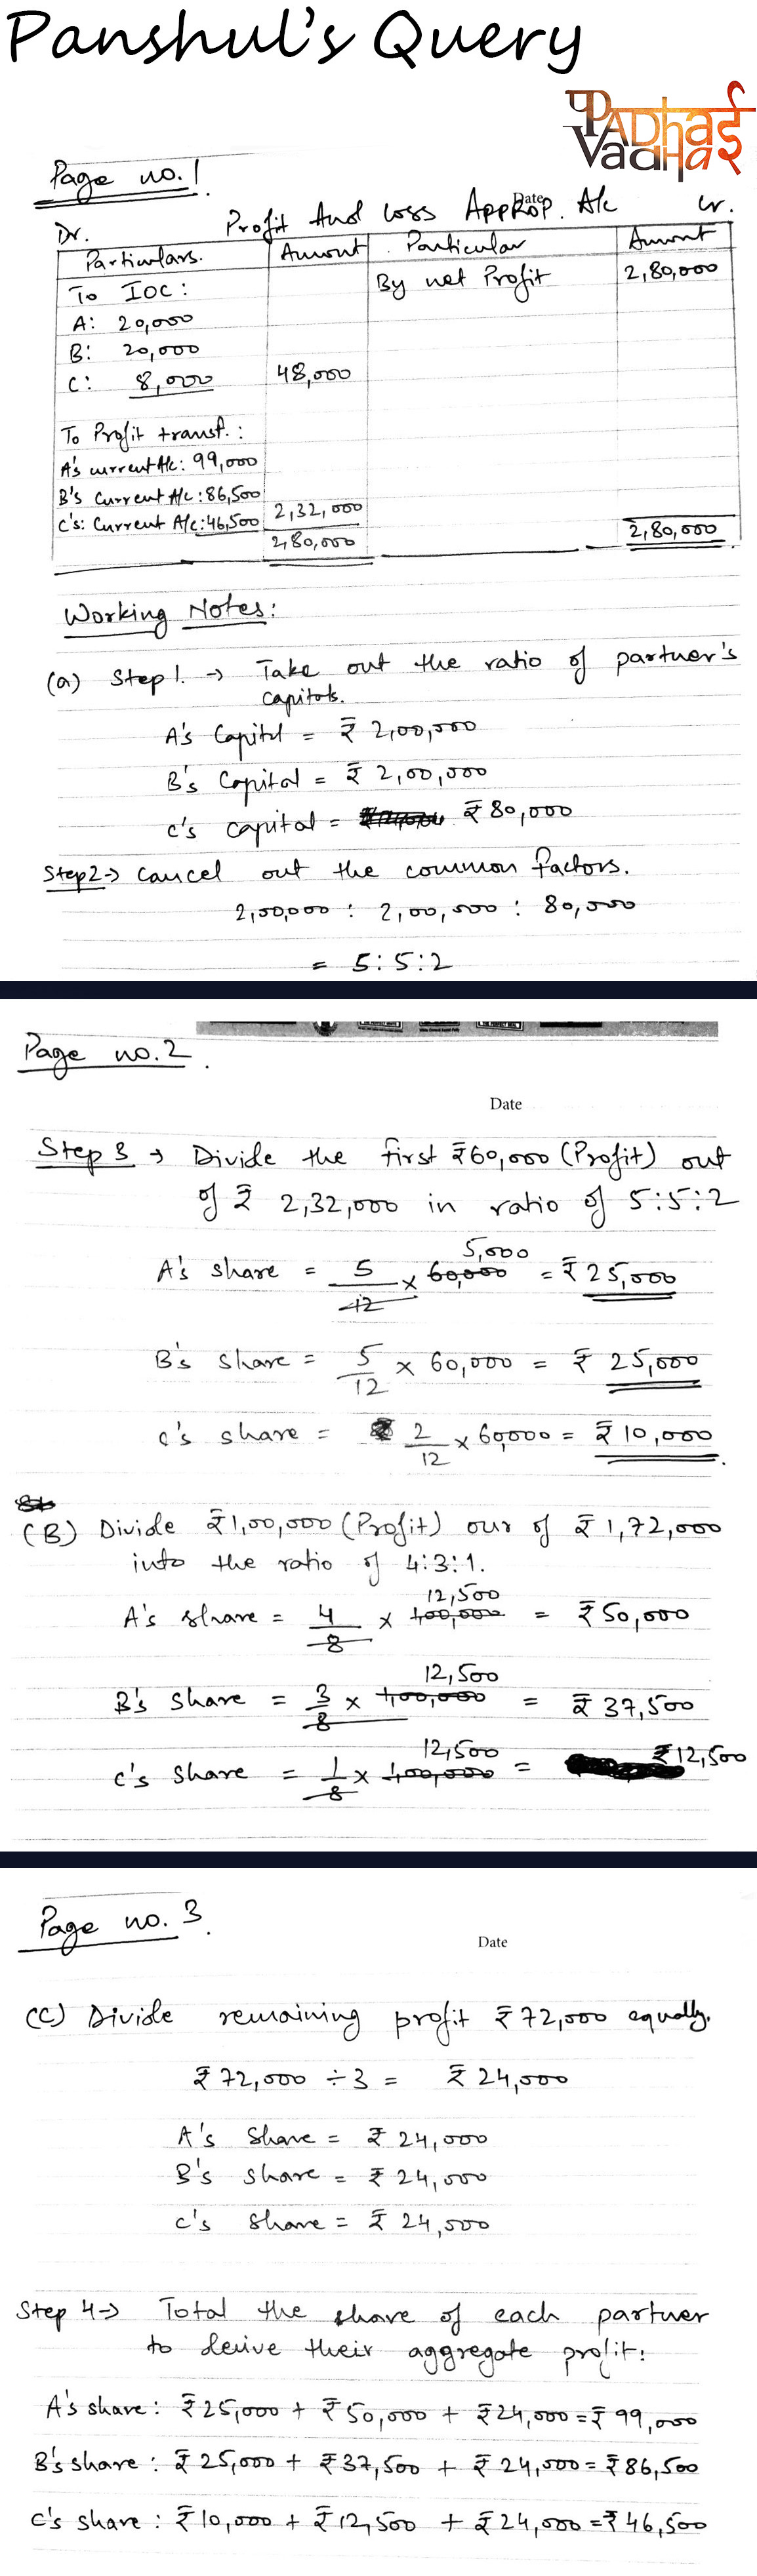 Panshul's Query
PADhai VadHai
Page no. 1
Date
Dr. Profit And Loss Approp. A/c Cr.
Particulars. Amount Particular Amount
To IOC: By net Profit 2,80,000
A: 20,000
B: 20,000
C: 8,000 48,000
To Profit transf.:
A's current A/c: 99,000
B's Current A/c: 86,500
C's: Current A/c: 46,500 2,32,000
2,80,000 2,80,000
Working Notes:
(a) Step 1. → Take out the ratio of partner's
capitals.
A's Capital = ₹ 2,00,000
B's Capital = ₹ 2,00,000
C's capital = ₹ 80,000
Step 2 → Cancel out the common factors.
2,00,000 : 2,00,000 : 80,000
= 5:5:2
Page no. 2.
Date
Step 3 → Divide the first ₹60,000 (Profit) out
of ₹ 2,32,000 in ratio of 5:5:2
A's share = 5/12 × 60,000 5,000 = ₹ 25,000
B's share = 5/12 × 60,000 = ₹ 25,000
C's share = 2/12 × 60,000 = ₹ 10,000.
(B) Divide ₹1,00,000 (Profit) our of ₹ 1,72,000
into the ratio of 4:3:1.
A's share = 4/8 × 100,000 12,500 = ₹ 50,000
B's share = 3/8 × 1,00,000 12,500 = ₹ 37,500
C's share = 1/8 × 1,00,000 12,500 = ₹12,500
Page no. 3.
Date
(C) Divide remaining profit ₹72,000 equally.
₹ 72,000 ÷ 3 = ₹ 24,000
A's Share = ₹ 24,000
B's share = ₹ 24,000
C's share = ₹ 24,000
Step 4 → Total the share of each partner
to derive their aggregate profit:
A's share: ₹25,000 + ₹50,000 + ₹24,000 = ₹ 99,000
B's share: ₹ 25,000 + ₹37,500 + ₹ 24,000 = ₹86,500
C's share: ₹10,000 + ₹12,500 + ₹24,000 = ₹46,500